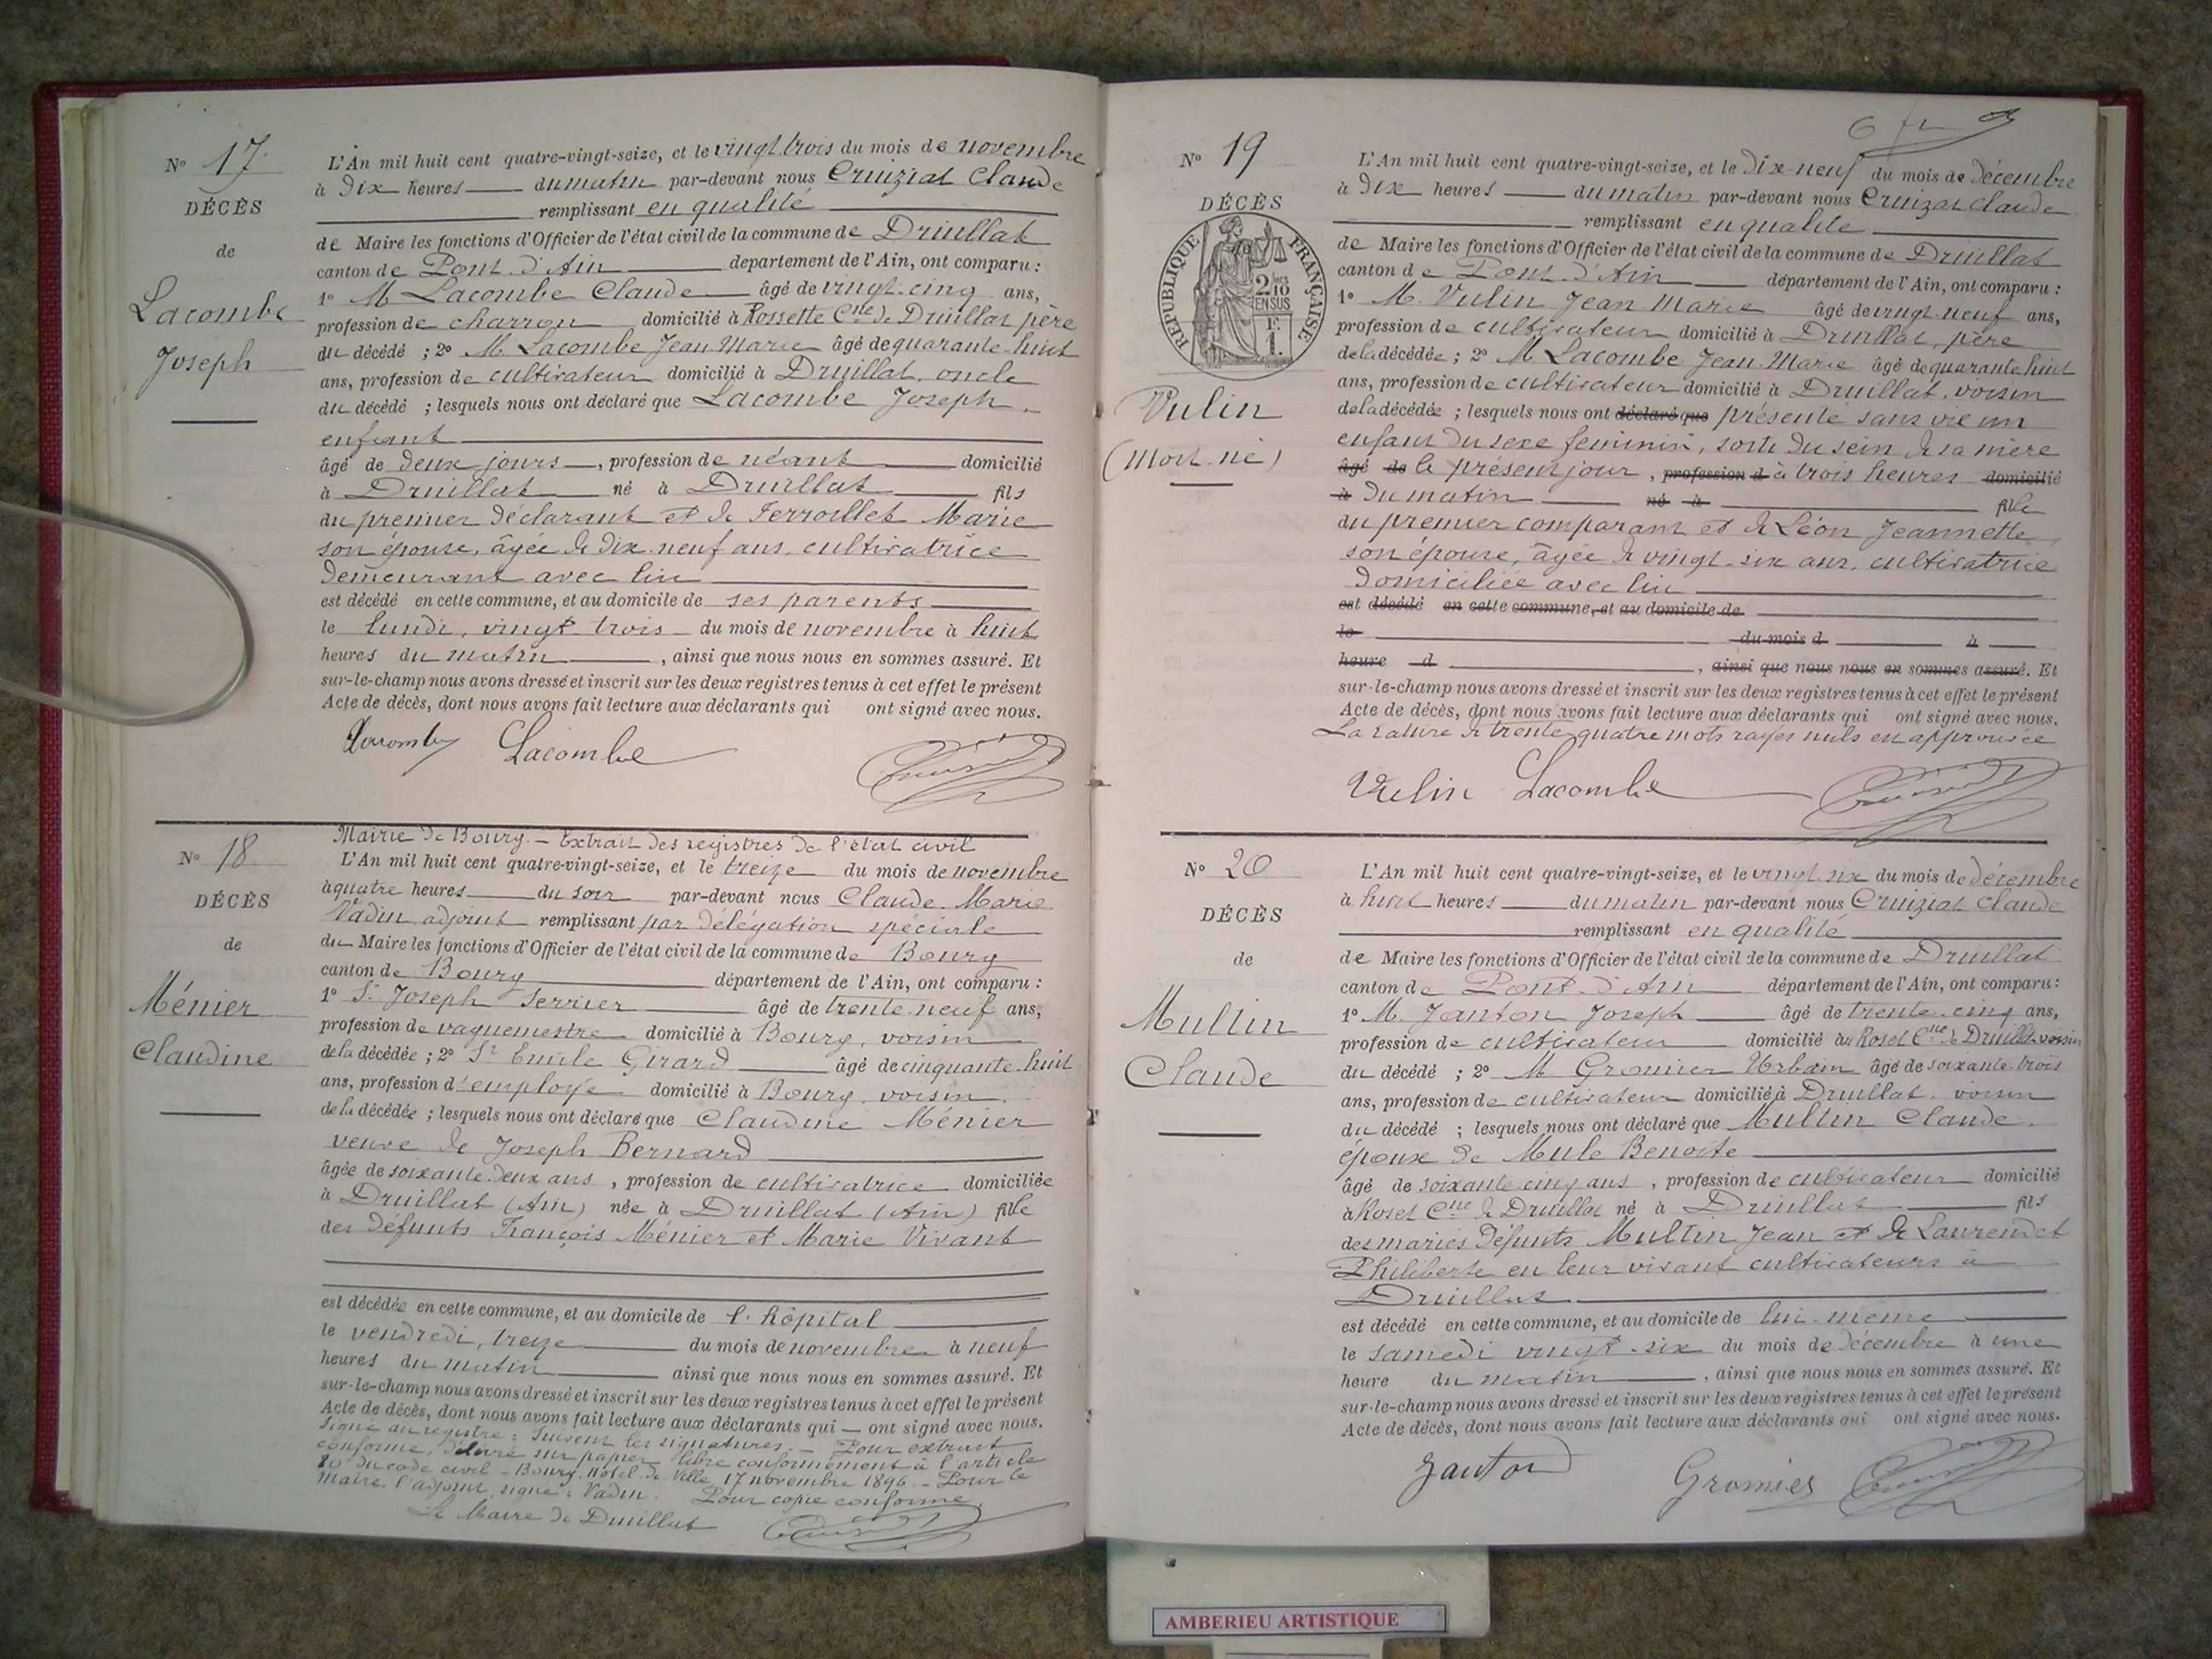 N° 17
DÉCÈS
de
Lacombe
Joseph
L'An mil huit cent quatre-vingt-seize, et le vingt trois du mois de novembre
à Dix heures du matin par-devant nous Cruiziat Claude
remplissant en qualité
de Maire les fonctions d'Officier de l'état civil de la commune de Druillat
canton de Pont d'Ain département de l'Ain, ont comparu :
1° M Lacombe Claude âgé de vingt-cinq ans,
profession de charron domicilié à Rossette Cne de Druillat père
du décédé ; 2° M. Lacombe Jean-Marie âgé de quarante-huit
ans, profession de cultivateur domicilié à Druillat, oncle
du décédé ; lesquels nous ont déclaré que Lacombe Joseph
enfant
âgé de deux jours, profession de néant domicilié
à Druillat né à Druillat fils
du premier déclarant et de Perroillet Marie
son épouse, âgée de dix-neuf ans, cultivatrice
demeurant avec lui
est décédé en cette commune, et au domicile de ses parents
le lundi, vingt-trois du mois de novembre à huit
heures du matin, ainsi que nous nous en sommes assuré. Et
sur-le-champ nous avons dressé et inscrit sur les deux registres tenus à cet effet le présent
Acte de décès, dont nous avons fait lecture aux déclarants qui ont signé avec nous.
Lacombe Lacombe
N° 18
DÉCÈS
de
Ménier
Claudine
Mairie de Bourg. - Extrait des registres de l'état civil
L'An mil huit cent quatre-vingt-seize, et le treize du mois de novembre
à quatre heures du soir par-devant nous Claude-Marie
Vadin adjoint remplissant par délégation spéciale
du Maire les fonctions d'Officier de l'état civil de la commune de Bourg
canton de Bourg département de l'Ain, ont comparu :
1° Sr Joseph Serrier âgé de trente-neuf ans,
profession de vaguemestre domicilié à Bourg, voisin
de la décédée ; 2° Sr Emile Girard âgé de cinquante-huit
ans, profession d'employé domicilié à Bourg, voisin
de la décédée ; lesquels nous ont déclaré que Claudine Ménier
veuve de Joseph Bernard
âgée de soixante-deux ans, profession de cultivatrice domiciliée
à Druillat (Ain) née à Druillat (Ain) fille
des défunts François Ménier et Marie Vivant
est décédée en cette commune, et au domicile de l'hôpital
le vendredi, treize du mois de novembre à neuf
heures du matin ainsi que nous nous en sommes assuré. Et
sur-le-champ nous avons dressé et inscrit sur les deux registres tenus à cet effet le présent
Acte de décès, dont nous avons fait lecture aux déclarants qui — ont signé avec nous.
Signé au registre : Suivent les signatures. - Pour extrait
conforme, délivré sur papier libre conformément à l'article
80 du code civil - Bourg, Hôtel de Ville, 17 novembre 1896. - Pour le
Maire, l'adjoint, signé : Vadin. Pour copie conforme,
Le Maire de Druillat
N° 19
DÉCÈS
RÉPUBLIQUE FRANÇAISE
2/10 EN SUS
F. 1.
Vulin
(Mort-né)
L'An mil huit cent quatre-vingt-seize, et le dix-neuf du mois de décembre
à dix heures du matin par-devant nous Cruiziat Claude
remplissant en qualité
de Maire les fonctions d'Officier de l'état civil de la commune de Druillat
canton de Pont d'Ain département de l'Ain, ont comparu :
1° M. Vulin Jean Marie âgé de vingt-neuf ans,
profession de cultivateur domicilié à Druillat, père
de la décédée ; 2° M Lacombe Jean-Marie âgé de quarante huit
ans, profession de cultivateur domicilié à Druillat, voisin
de la décédée ; lesquels nous ont déclaré que présenté sans vie un
enfant du sexe féminin, sorti du sein de sa mère
âgé de le présent jour, profession d à trois heures domicilié
à du matin né à fille
du premier comparant et de Léon Jeannette
son épouse, âgée de vingt-six ans, cultivatrice
domiciliée avec lui
est décédé en cette commune, et au domicile de
le du mois d à
heure d, ainsi que nous nous en sommes assuré. Et
sur-le-champ nous avons dressé et inscrit sur les deux registres tenus à cet effet le présent
Acte de décès, dont nous avons fait lecture aux déclarants qui ont signé avec nous.
La rature de trente quatre mots rayés nuls est approuvée
Vulin Lacombe
N° 20
DÉCÈS
de
Multin
Claude
L'An mil huit cent quatre-vingt-seize, et le vingt-six du mois de décembre
à huit heures du matin par-devant nous Cruiziat Claude
remplissant en qualité
de Maire les fonctions d'Officier de l'état civil de la commune de Druillat
canton de Pont d'Ain département de l'Ain, ont comparu :
1° M. Janton Joseph âgé de trente-cinq ans,
profession de cultivateur domicilié au Roset Cne de Druillat voisin
du décédé ; 2° M Gromier Urbain âgé de soixante-trois
ans, profession de cultivateur domicilié à Druillat, voisin
du décédé ; lesquels nous ont déclaré que Multin Claude
époux de Mule Benoite
âgé de soixante cinq ans, profession de cultivateur domicilié
à Roset Cne de Druillat né à Druillat fils
des mariés défunts Multin Jean et de Laurendet
Philiberte en leur vivant cultivateurs à
Druillat
est décédé en cette commune, et au domicile de lui-même
le samedi vingt-six du mois de décembre à une
heure du matin, ainsi que nous nous en sommes assuré. Et
sur-le-champ nous avons dressé et inscrit sur les deux registres tenus à cet effet le présent
Acte de décès, dont nous avons fait lecture aux déclarants qui ont signé avec nous.
Janton Gromier
AMBERIEU ARTISTIQUE